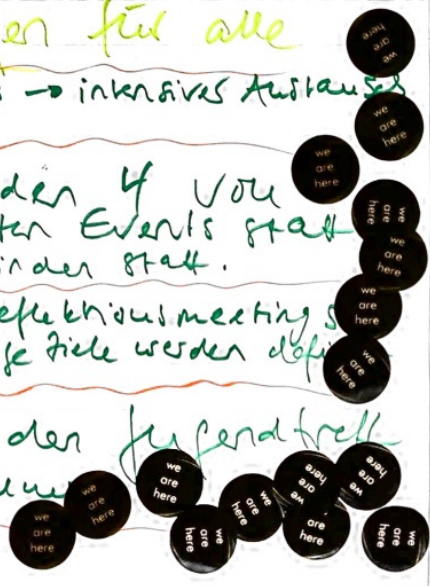 en für alle
→ intensives Austausch
den 4 von
ten Events statt
inden statt.
eflektionsmeeting s
ge Ziele werden defi
den Jugendtreff
we are here
we are here
we are here
we are here
we are here
we are here
we are here
we are here
we are here
we are here
we are here
we are here
we are here
we are here
are here
we are here